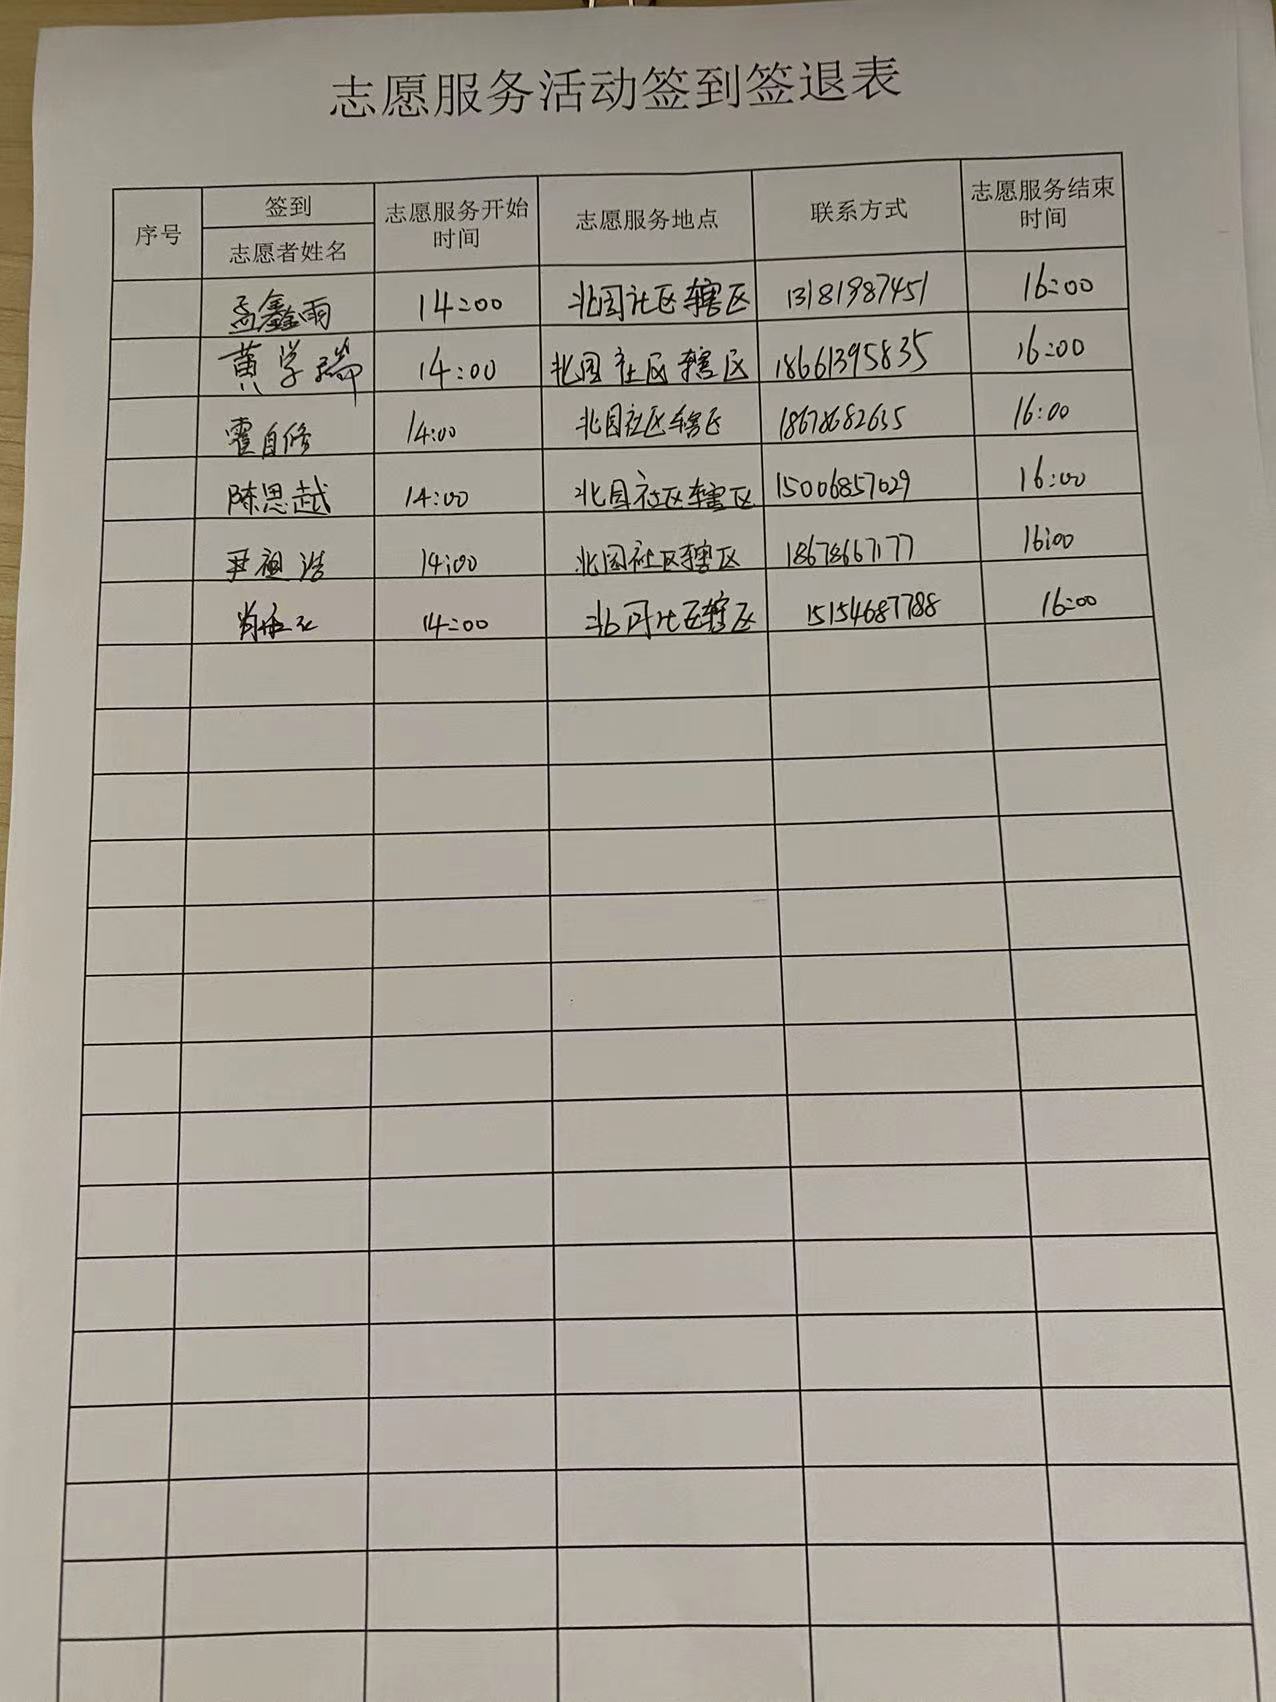 志愿服务活动签到签退表
序号 签到 志愿者姓名 志愿服务开始时间 志愿服务地点 联系方式 志愿服务结束时间
孟鑫雨 14:00 北园社区辖区 13181987451 16:00
黄学瑞 14:00 北园社区辖区 18661395835 16:00
霍自修 14:00 北园社区辖区 18678682635 16:00
陈思越 14:00 北园社区辖区 15006857029 16:00
尹祖浩 14:00 北园社区辖区 18678667177 16:00
14:00 北园社区辖区 15154687788 16:00